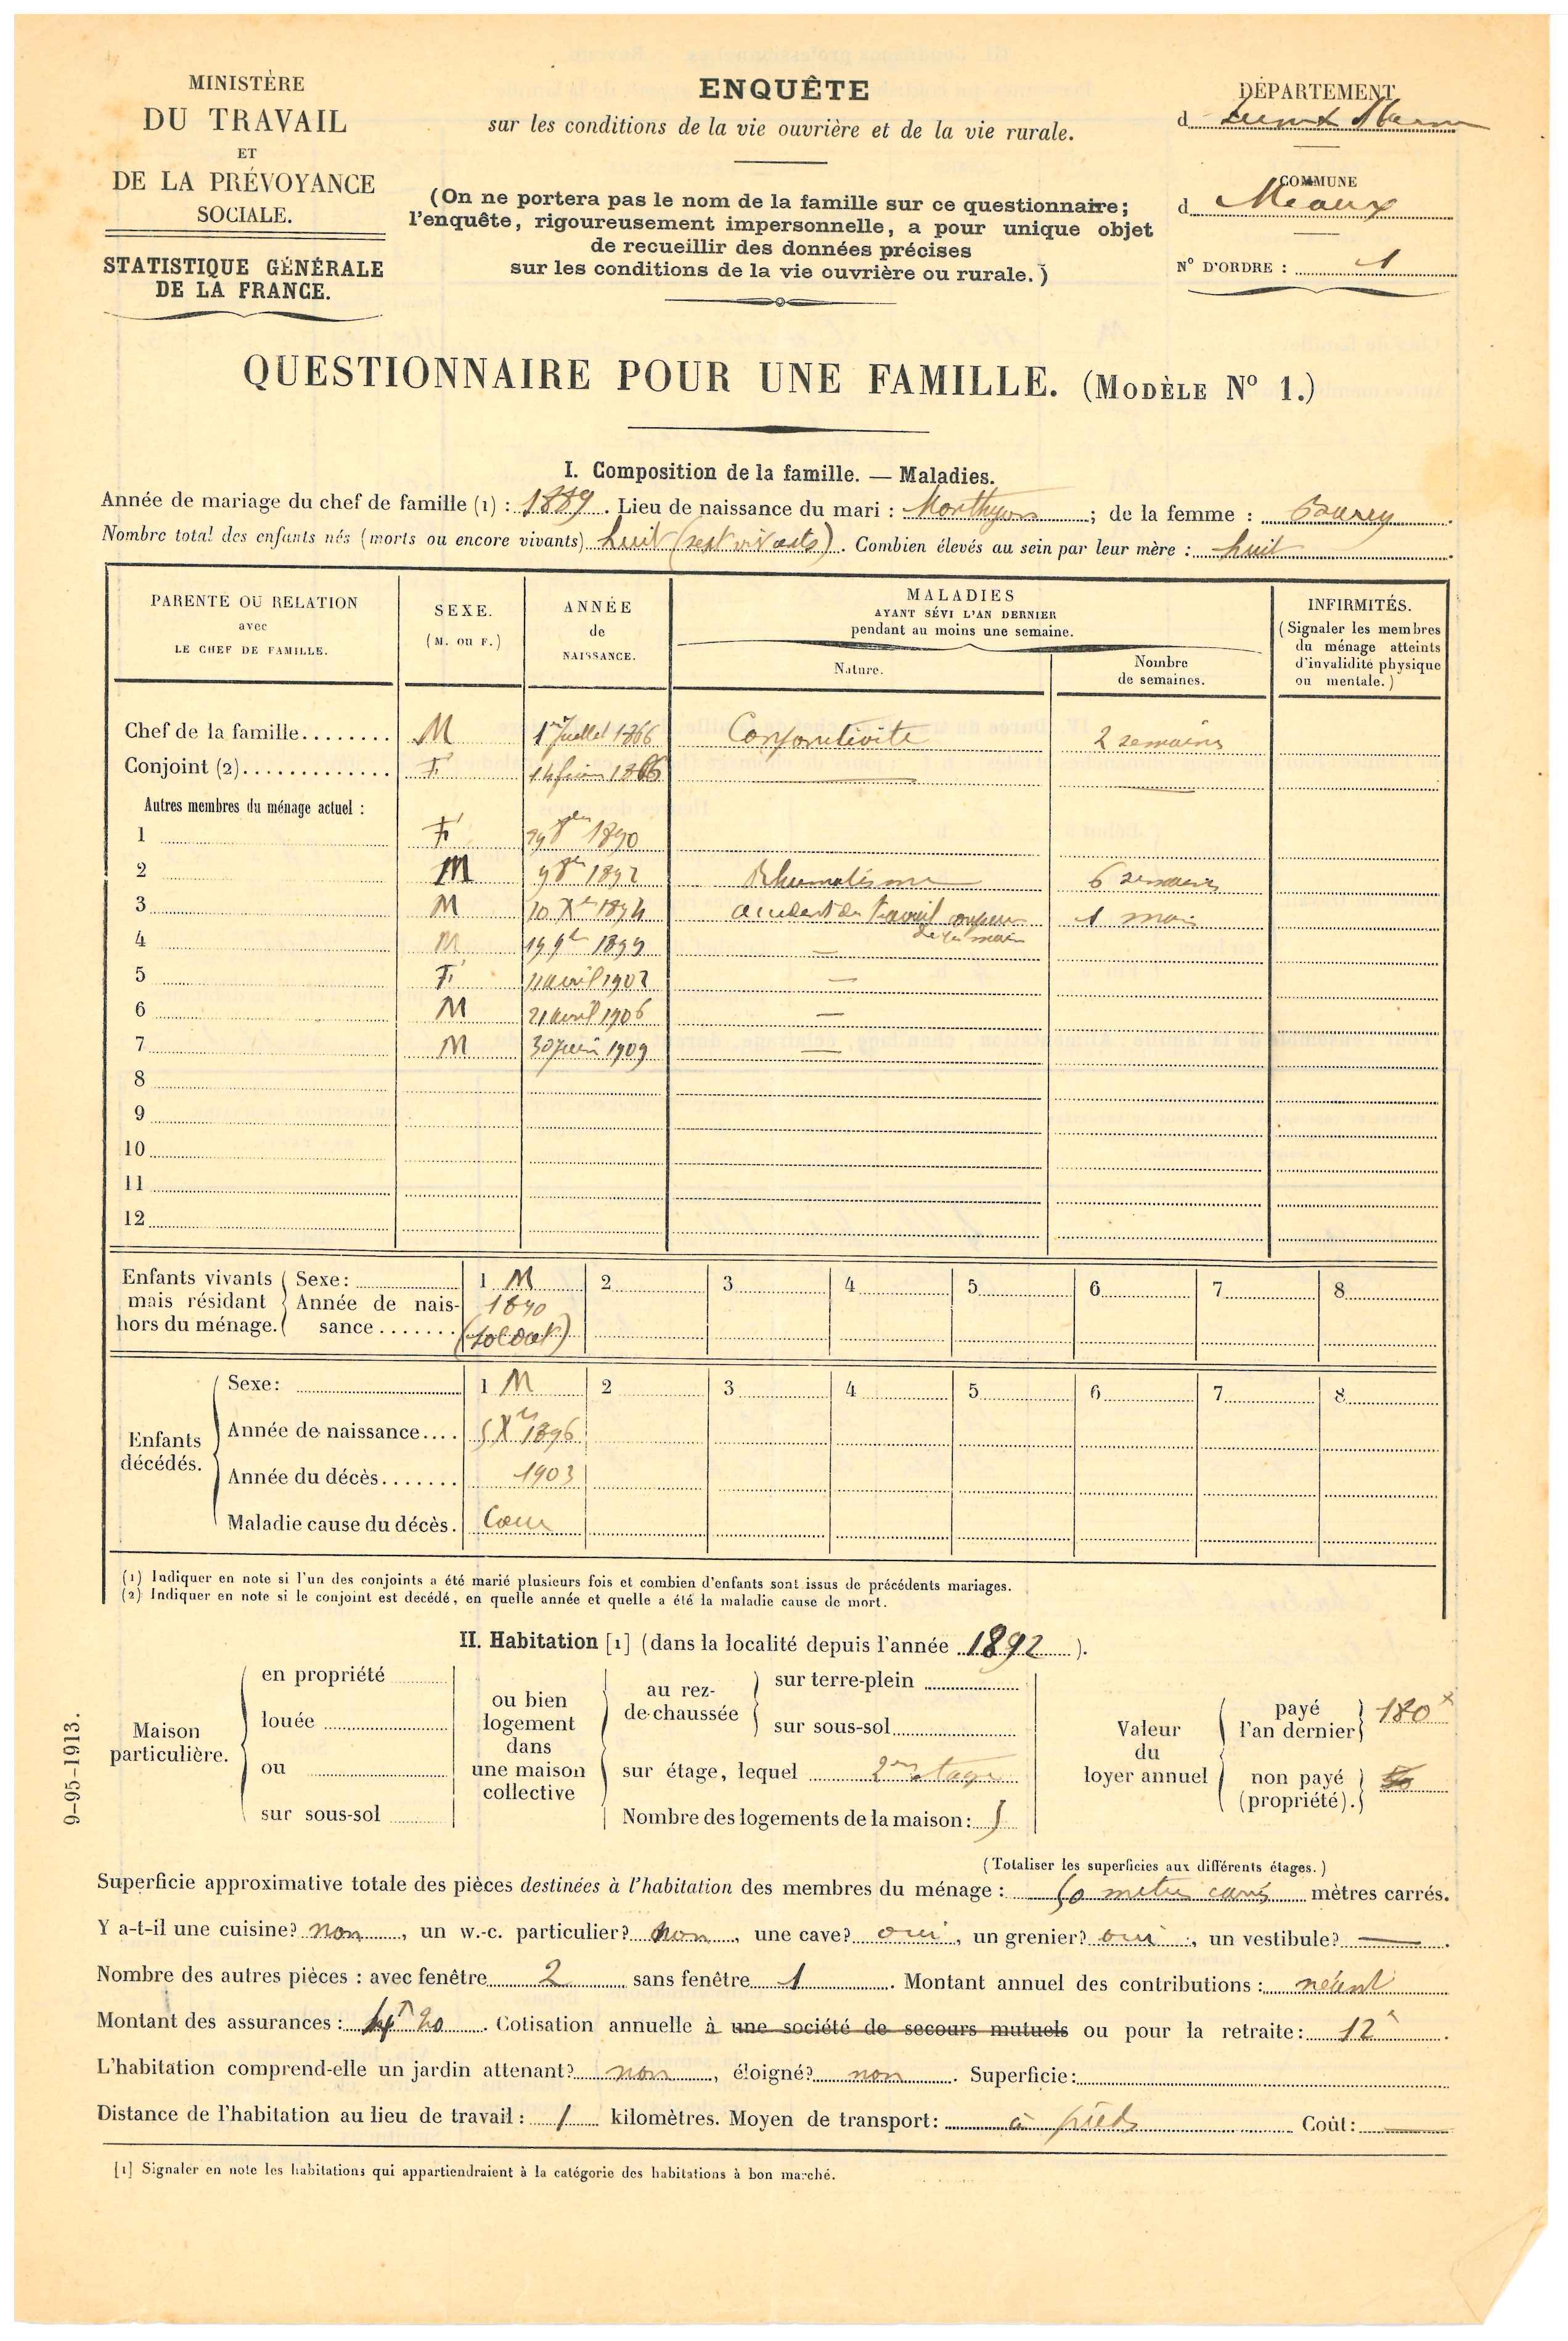 MINISTÈRE
DU TRAVAIL
ET
DE LA PRÉVOYANCE
SOCIALE.
STATISTIQUE GÉNÉRALE
DE LA FRANCE.
ENQUÊTE
sur les conditions de la vie ouvrière et de la vie rurale.
(On ne portera pas le nom de la famille sur ce questionnaire;
l'enquête, rigoureusement impersonnelle, a pour unique objet
de recueillir des données précises
sur les conditions de la vie ouvrière ou rurale.)
DÉPARTEMENT
d Seine & Marne
COMMUNE
d Meaux
N° D'ORDRE : 1
QUESTIONNAIRE POUR UNE FAMILLE. (MODÈLE N° 1.)
I. Composition de la famille. — Maladies.
Année de mariage du chef de famille (1) : 1889. Lieu de naissance du mari : Monthyon ; de la femme :
Nombre total des enfants nés (morts ou encore vivants) huit (sept vivants). Combien élevés au sein par leur mère : huit
PARENTE OU RELATION
avec
LE CHEF DE FAMILLE.
SEXE.
(M. ou F.)
ANNÉE
de
NAISSANCE.
MALADIES
AYANT SÉVI L'AN DERNIER
pendant au moins une semaine.
Nature.
Nombre
de semaines.
INFIRMITÉS.
(Signaler les membres
du ménage atteints
d'invalidité physique
ou mentale.)
Chef de la famille........ M 1er Juillet 1866 Conjonctivite 2 semaines
Conjoint (2)............. F 1866 —
Autres membres du ménage actuel :
1 F 1890
2 M 1892 Rhumatisme 6 semaines
3 M 10 Xbre 1894 accident du travail 1 mois
de la main
4 M 1899 —
5 F avril 1902 —
6 M 21 avril 1906 —
7 M 30 juin 1909 —
8
9
10
11
12
Enfants vivants
mais résidant
hors du ménage.
Sexe: 1 M 2 3 4 5 6 7 8
Année de nais-
sance....... 1890
(soldat)
Enfants
décédés.
Sexe: 1 M 2 3 4 5 6 7 8
Année de naissance.... 5 Xbre 1896
Année du décès....... 1903
Maladie cause du décès. Coeur
(1) Indiquer en note si l'un des conjoints a été marié plusieurs fois et combien d'enfants sont issus de précédents mariages.
(2) Indiquer en note si le conjoint est décédé, en quelle année et quelle a été la maladie cause de mort.
II. Habitation [1] (dans la localité depuis l'année 1892).
Maison
particulière.
en propriété
louée
ou
sur sous-sol
ou bien
logement
dans
une maison
collective
au rez-
de-chaussée
sur terre-plein
sur sous-sol
sur étage, lequel 2me étage
Nombre des logements de la maison:
Valeur
du
loyer annuel
payé
l'an dernier 180f
non payé
(propriété).
9-95-1913.
(Totaliser les superficies aux différents étages.)
Superficie approximative totale des pièces destinées à l'habitation des membres du ménage : 50 mètres carrés mètres carrés.
Y a-t-il une cuisine? non, un w.-c. particulier? non, une cave? oui, un grenier? oui, un vestibule? —.
Nombre des autres pièces : avec fenêtre 2 sans fenêtre 1. Montant annuel des contributions : néant
Montant des assurances : 20. Cotisation annuelle à une société de secours mutuels ou pour la retraite: 12f.
L'habitation comprend-elle un jardin attenant? non, éloigné? non. Superficie:
Distance de l'habitation au lieu de travail : 1 kilomètres. Moyen de transport: à pieds Coût: —
[1] Signaler en note les habitations qui appartiendraient à la catégorie des habitations à bon marché.